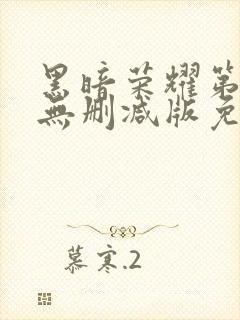 黑暗荣耀第
無删减版免
慕寒.2